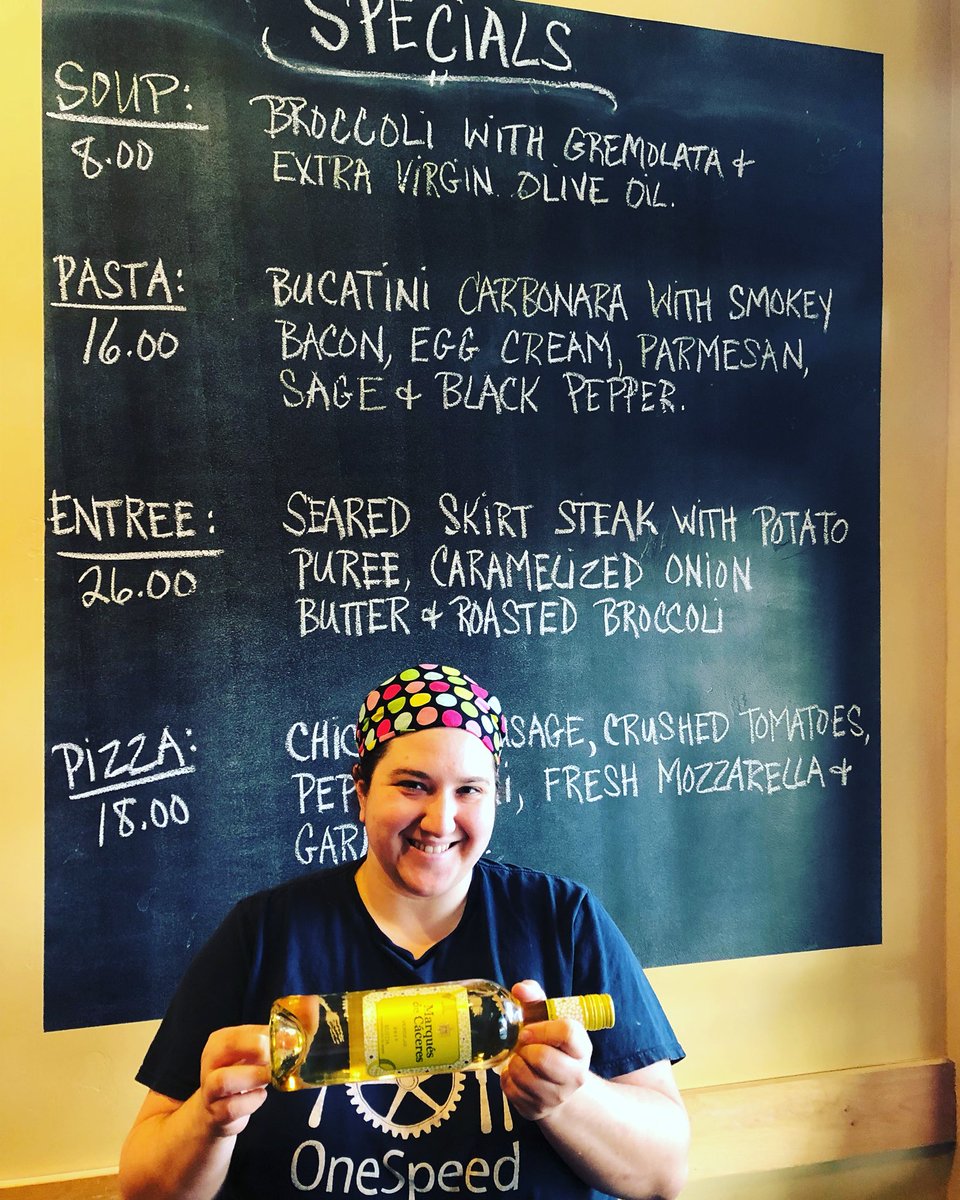 SPECIALS
SOUP:
8.00
BROCCOLI WITH GREMOLATA &
EXTRA VIRGIN OLIVE OIL.
PASTA:
16.00
BUCATINI CARBONARA WITH SMOKEY
BACON, EGG CREAM, PARMESAN,
SAGE & BLACK PEPPER.
ENTREE:
26.00
SEARED SKIRT STEAK WITH POTATO
PUREE, CARAMELIZED ONION
BUTTER & ROASTED BROCCOLI
PIZZA:
18.00
CRUSHED TOMATOES,
FRESH MOZZARELLA &
Marqués
de Cáceres
OneSpeed